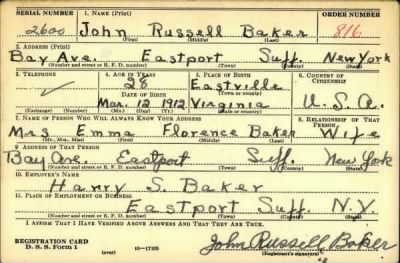 SERIAL NUMBER 1. NAME (Print) ORDER NUMBER
2600 John Russell Baker 816
(First) (Middle) (Last)
2. ADDRESS (Print)
Bay Ave. Eastport Suff. New York
(Number and street or R. F. D. number) (Town) (County) (State)
3. TELEPHONE 4. AGE IN YEARS 5. PLACE OF BIRTH 6. COUNTRY OF CITIZENSHIP
28 Eastville
DATE OF BIRTH (Town or county)
Mar. 12 1912 Virginia U. S. A.
(Exchange) (Number) (Mo.) (Day) (Yr.) (State or country)
7. NAME OF PERSON WHO WILL ALWAYS KNOW YOUR ADDRESS 8. RELATIONSHIP OF THAT PERSON
Mrs Emma Florence Baker Wife
(Mr., Mrs., Miss) (First) (Middle) (Last)
9. ADDRESS OF THAT PERSON
Bay Ave. Eastport Suff. New York
(Number and street or R. F. D. number) (Town) (County) (State)
10. EMPLOYER'S NAME
Harry S. Baker
11. PLACE OF EMPLOYMENT OR BUSINESS
Eastport Suff. N.Y.
(Number and street or R. F. D. number) (Town) (County) (State)
I AFFIRM THAT I HAVE VERIFIED ABOVE ANSWERS AND THAT THEY ARE TRUE.
REGISTRATION CARD
D. S. S. Form 1 (over) 16-17105 John Russell Baker
(Registrant's signature)